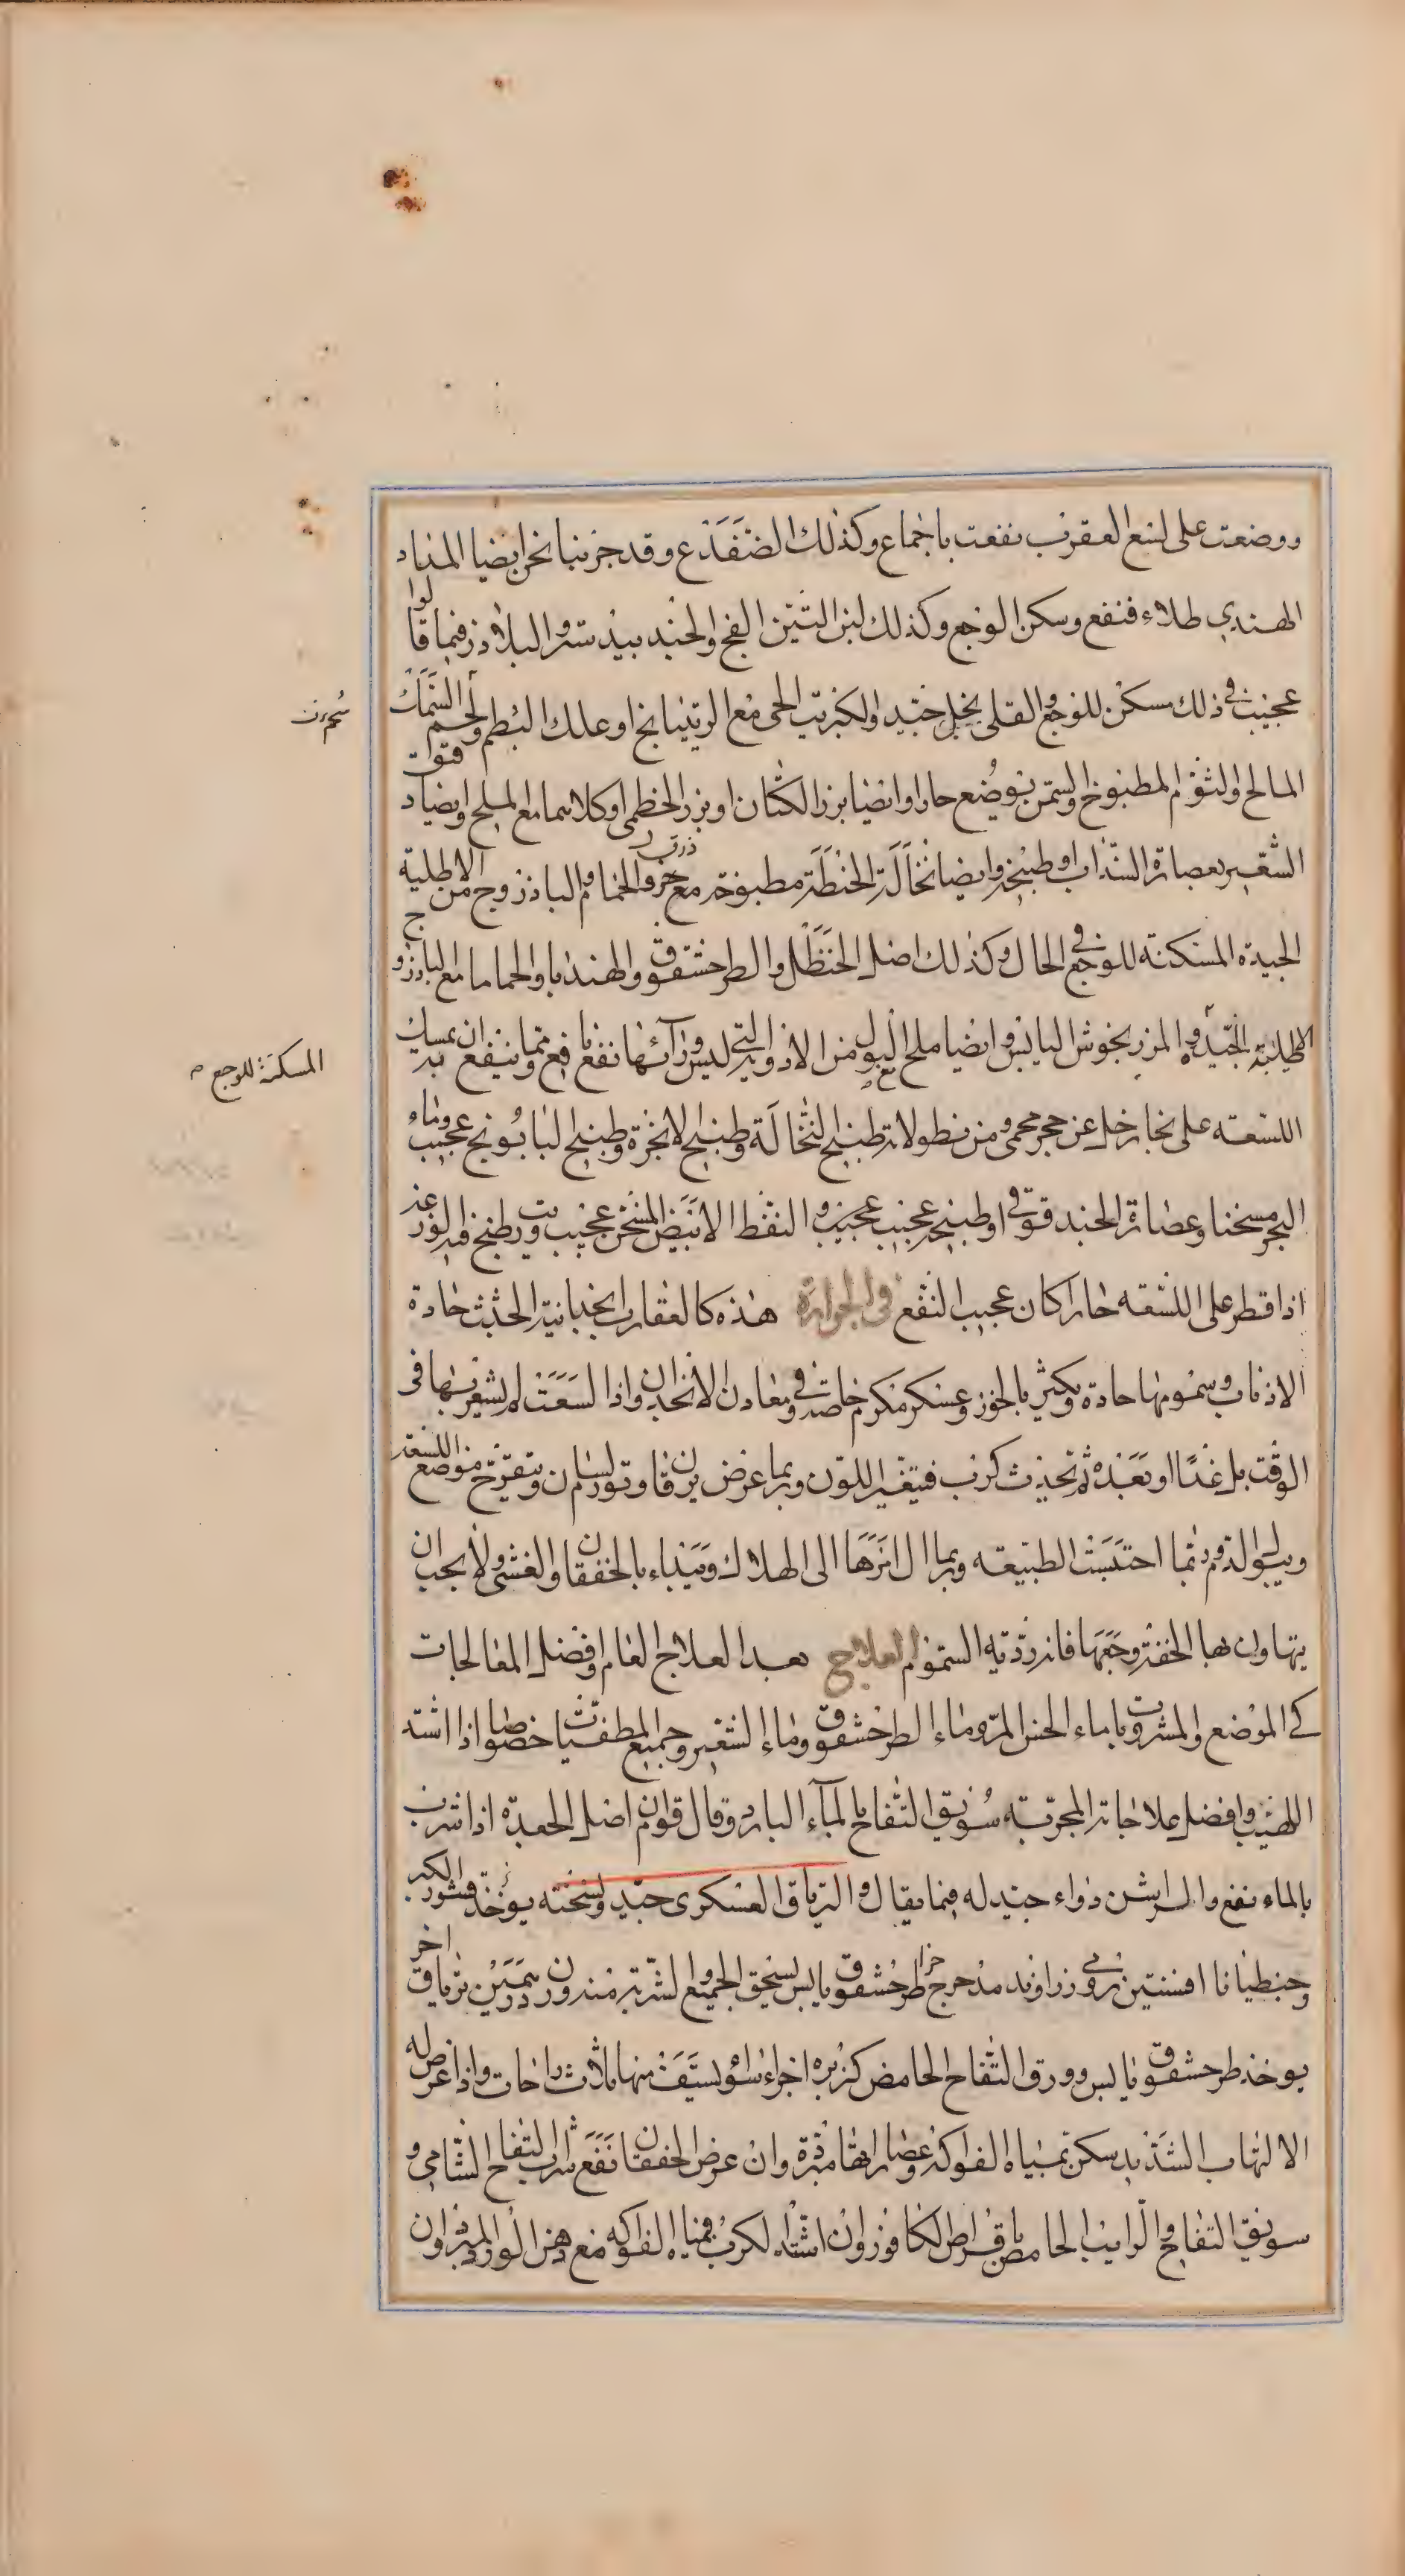 ووضعت على لسع العقرب نفعت باجماع وكذلك الضفدع وقد جربنا نحن ايضا المداد
الهندي طلاء فنفع وسكن الوجع وكذلك لبن التين الفج والجندبيدستر والبلاذر فيما قالوا
عجيب في ذلك مسكن للوجع والقلى بخل جيد والكبريت الحي مع الريتيانج او علك البطم ولحم السمك
المالح والثوم المطبوخ والسمن يوضع حارا وايضا بزر الكتان او بزر الخطمى او كلاهما مع الملح وايضا دقوات
الشعير بعصارة السذاب او طبيخه وايضا نخالة الحنطة مطبوخة مع خرو ذرق الحمام والباذروج من الاطلية
الجيدة المسكنة للوجع في الحال وكذلك اصل الحنظل والطرخشقوق والهندبا والحماما مع الباذروج
الاطلية الجيدة والمرزنجوش اليابس وايضا ملح البول من الادوية التي ليس ورآئها نفع نافع ومما ينفع ان يمسك به
اللسعة على بخار خل عن حجر محمى ومن نطولاته طبيخ النخالة وطبيخ الانجرة وطبيخ البابونج عجيب وماء
البحر مسخنا وعصارة الحندقوقي او طبيخه عجيب عجيب والنفط الابيض المسخن عجيب وزيت طبخ فيه الوزغ
اذا قطر على اللسعة حارا كان عجيب النفع في الجرارة هذه كالعقارب انجدانية الجثث حادة
الاذناب وسمومها حادة وتكثر بالخوز وعسكر مكرم خاصة وفي معادن الانجدان واذا لسعت لم يشعر بها في
الوقت بل غدا او بعده ثم تحدث كرب فيتغير اللون وربما عرض يرقان وتورم لسان ويتقرح موضع اللسعة
ويبول الدم وربما احتبست الطبيعة وربما ال امرها الى الهلاك ويبداء بالخفقان والغشي ولا يجب ان
يتهاون بها لخفة وجعها فانه ردية السموم العلاج بعد العلاج العام وافضل المعالجات
كي الموضع والمشروبات ماء الخس المر وماء الطرخشقوق وماء الشعير وجميع المطفيات خصوصا اذا اشتد
اللهيب وافضل علاجاته المجربة سويق التفاح بالمآء البارد وقال قوم ان اصل الجعدة اذا شرب
بالماء نفع والرايشن دواء جيد له فيما يقال والترياق العسكرى جيد ونسخته يوخذ قشور الكبر
وجنطيانا افسنتين رومي زراوند مدحرج طرخشقوق يابس يسحق الجميع والشربة منه وزن درهمين ترياق اخر
يوخذ طرخشقوق يابس وورق التفاح الحامض كزبره اجزاء سواء يستف منها ثلاث راحات واذا عرض له
الالتهاب الشديد سكن بمياه الفواكه وعصاراتها مبردة وان عرض الخفقان نفع شراب التفاح الشامي و
سويق التفاح والرايب الحامض باقراص الكافور وان اشتد الكرب فمياه الفواكه مع دهن الورد المبرد وان
المسكنة للوجع م